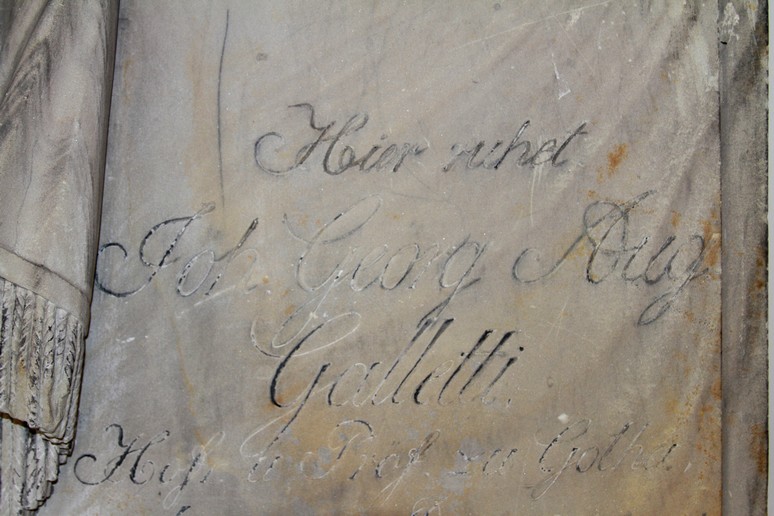 Hier ruhet
Joh Georg Aug
Galletti,
Hist. u Prof. zu Gotha,